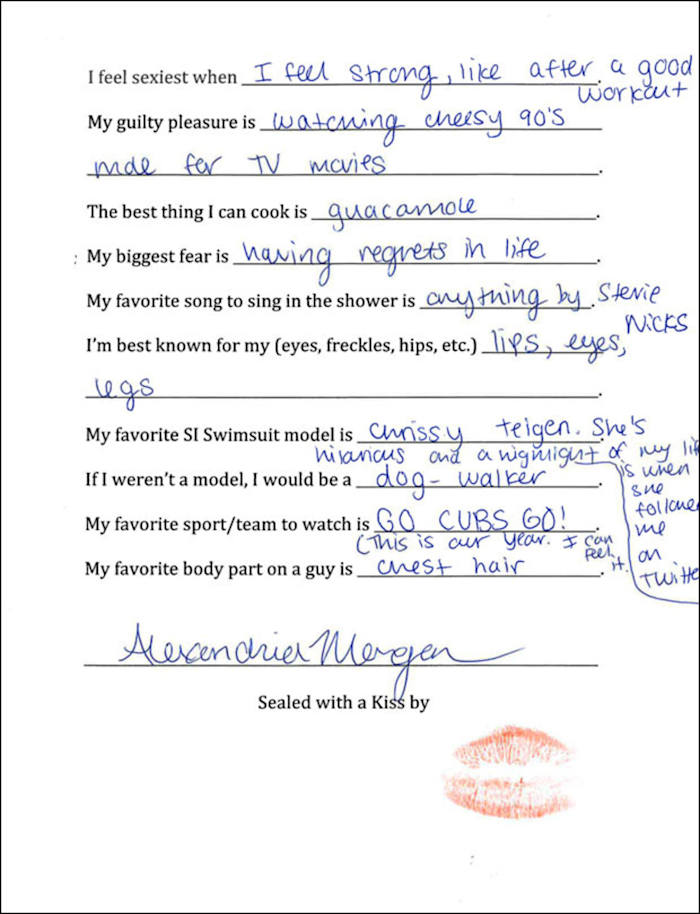 I feel sexiest when I feel strong, like after a good
workout
My guilty pleasure is watching cheesy 90's
made for TV movies.
The best thing I can cook is guacamole.
: My biggest fear is having regrets in life.
My favorite song to sing in the shower is anything by. Stevie
Nicks
I'm best known for my (eyes, freckles, hips, etc.) lips, eyes,
legs.
My favorite SI Swimsuit model is chrissy teigen. She's
hilarious and a highlight of my lif
is when
she
followe
me
on
TWitte
If I weren't a model, I would be a dog-walker.
My favorite sport/team to watch is GO CUBS GO!.
(This is our year. I can
feel
it.
My favorite body part on a guy is chest hair.
Alexandria Morgan
Sealed with a Kiss by